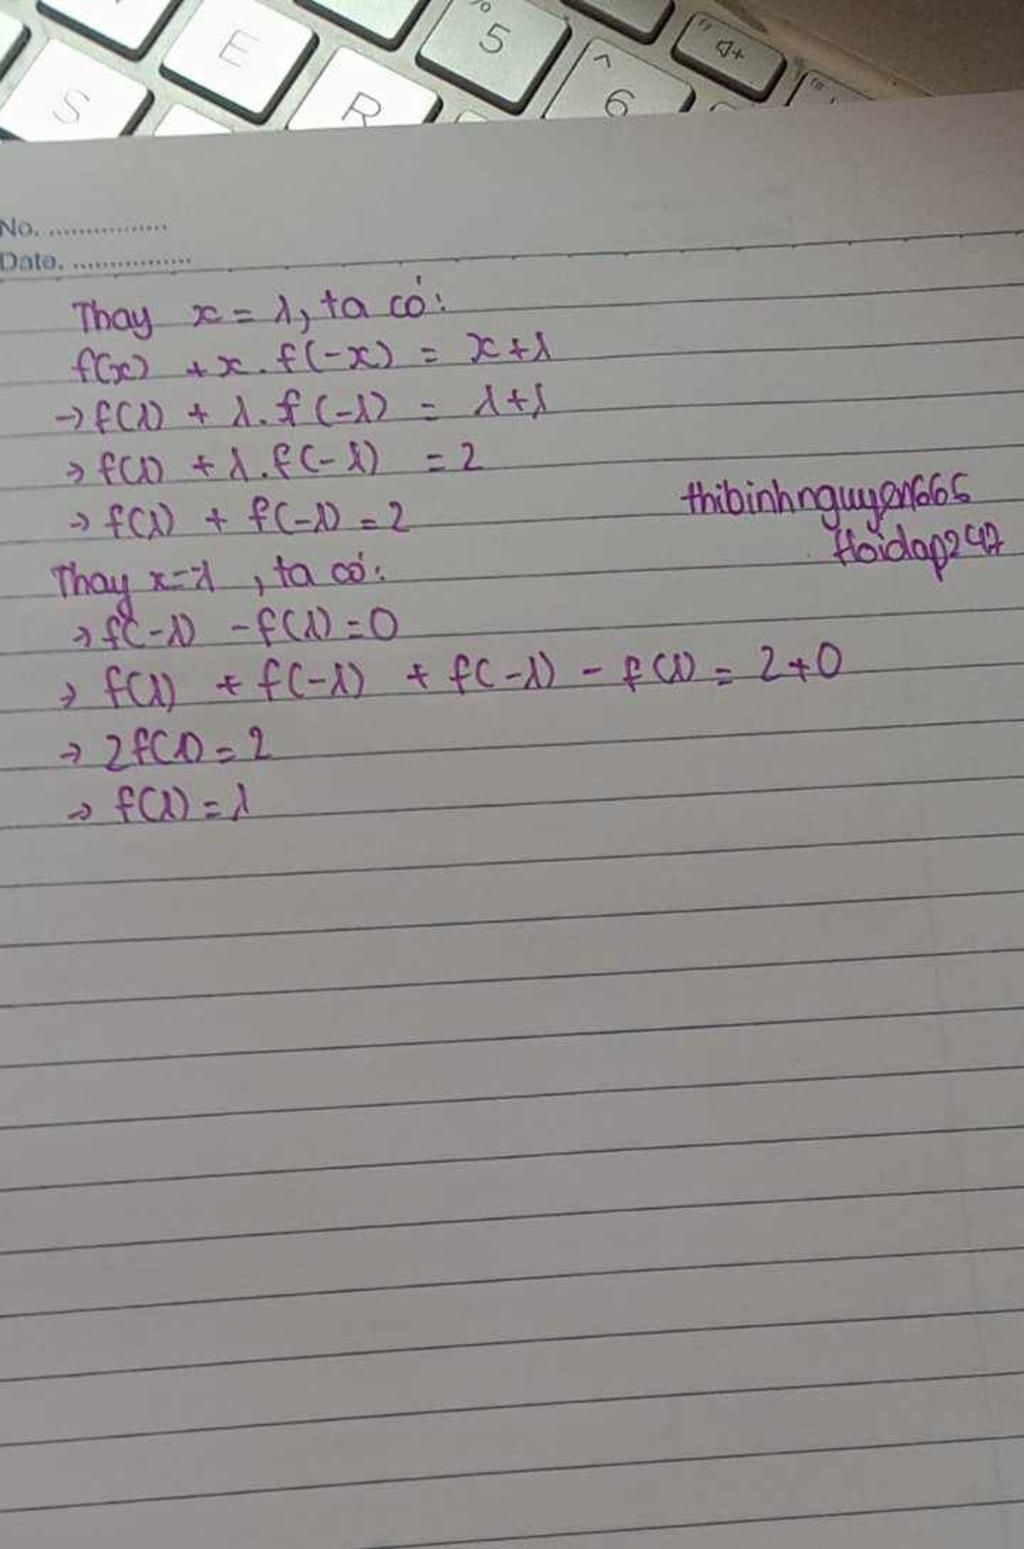 E
5
S
R
^
6
No. ................
Date. ................
Thay x = 1, ta có:
f(x) + x. f(-x) = x+1
→ f(1) + 1. f(-1) = 1+1
→ f(1) + 1. f(-1) = 2
→ f(1) + f(-1) = 2
thibinhnguyen666
Hoidap247
Thay x=-1, ta có:
→ f(-1) - f(1) = 0
→ f(1) + f(-1) + f(-1) - f(1) = 2+0
→ 2f(1) = 2
→ f(1) = 1